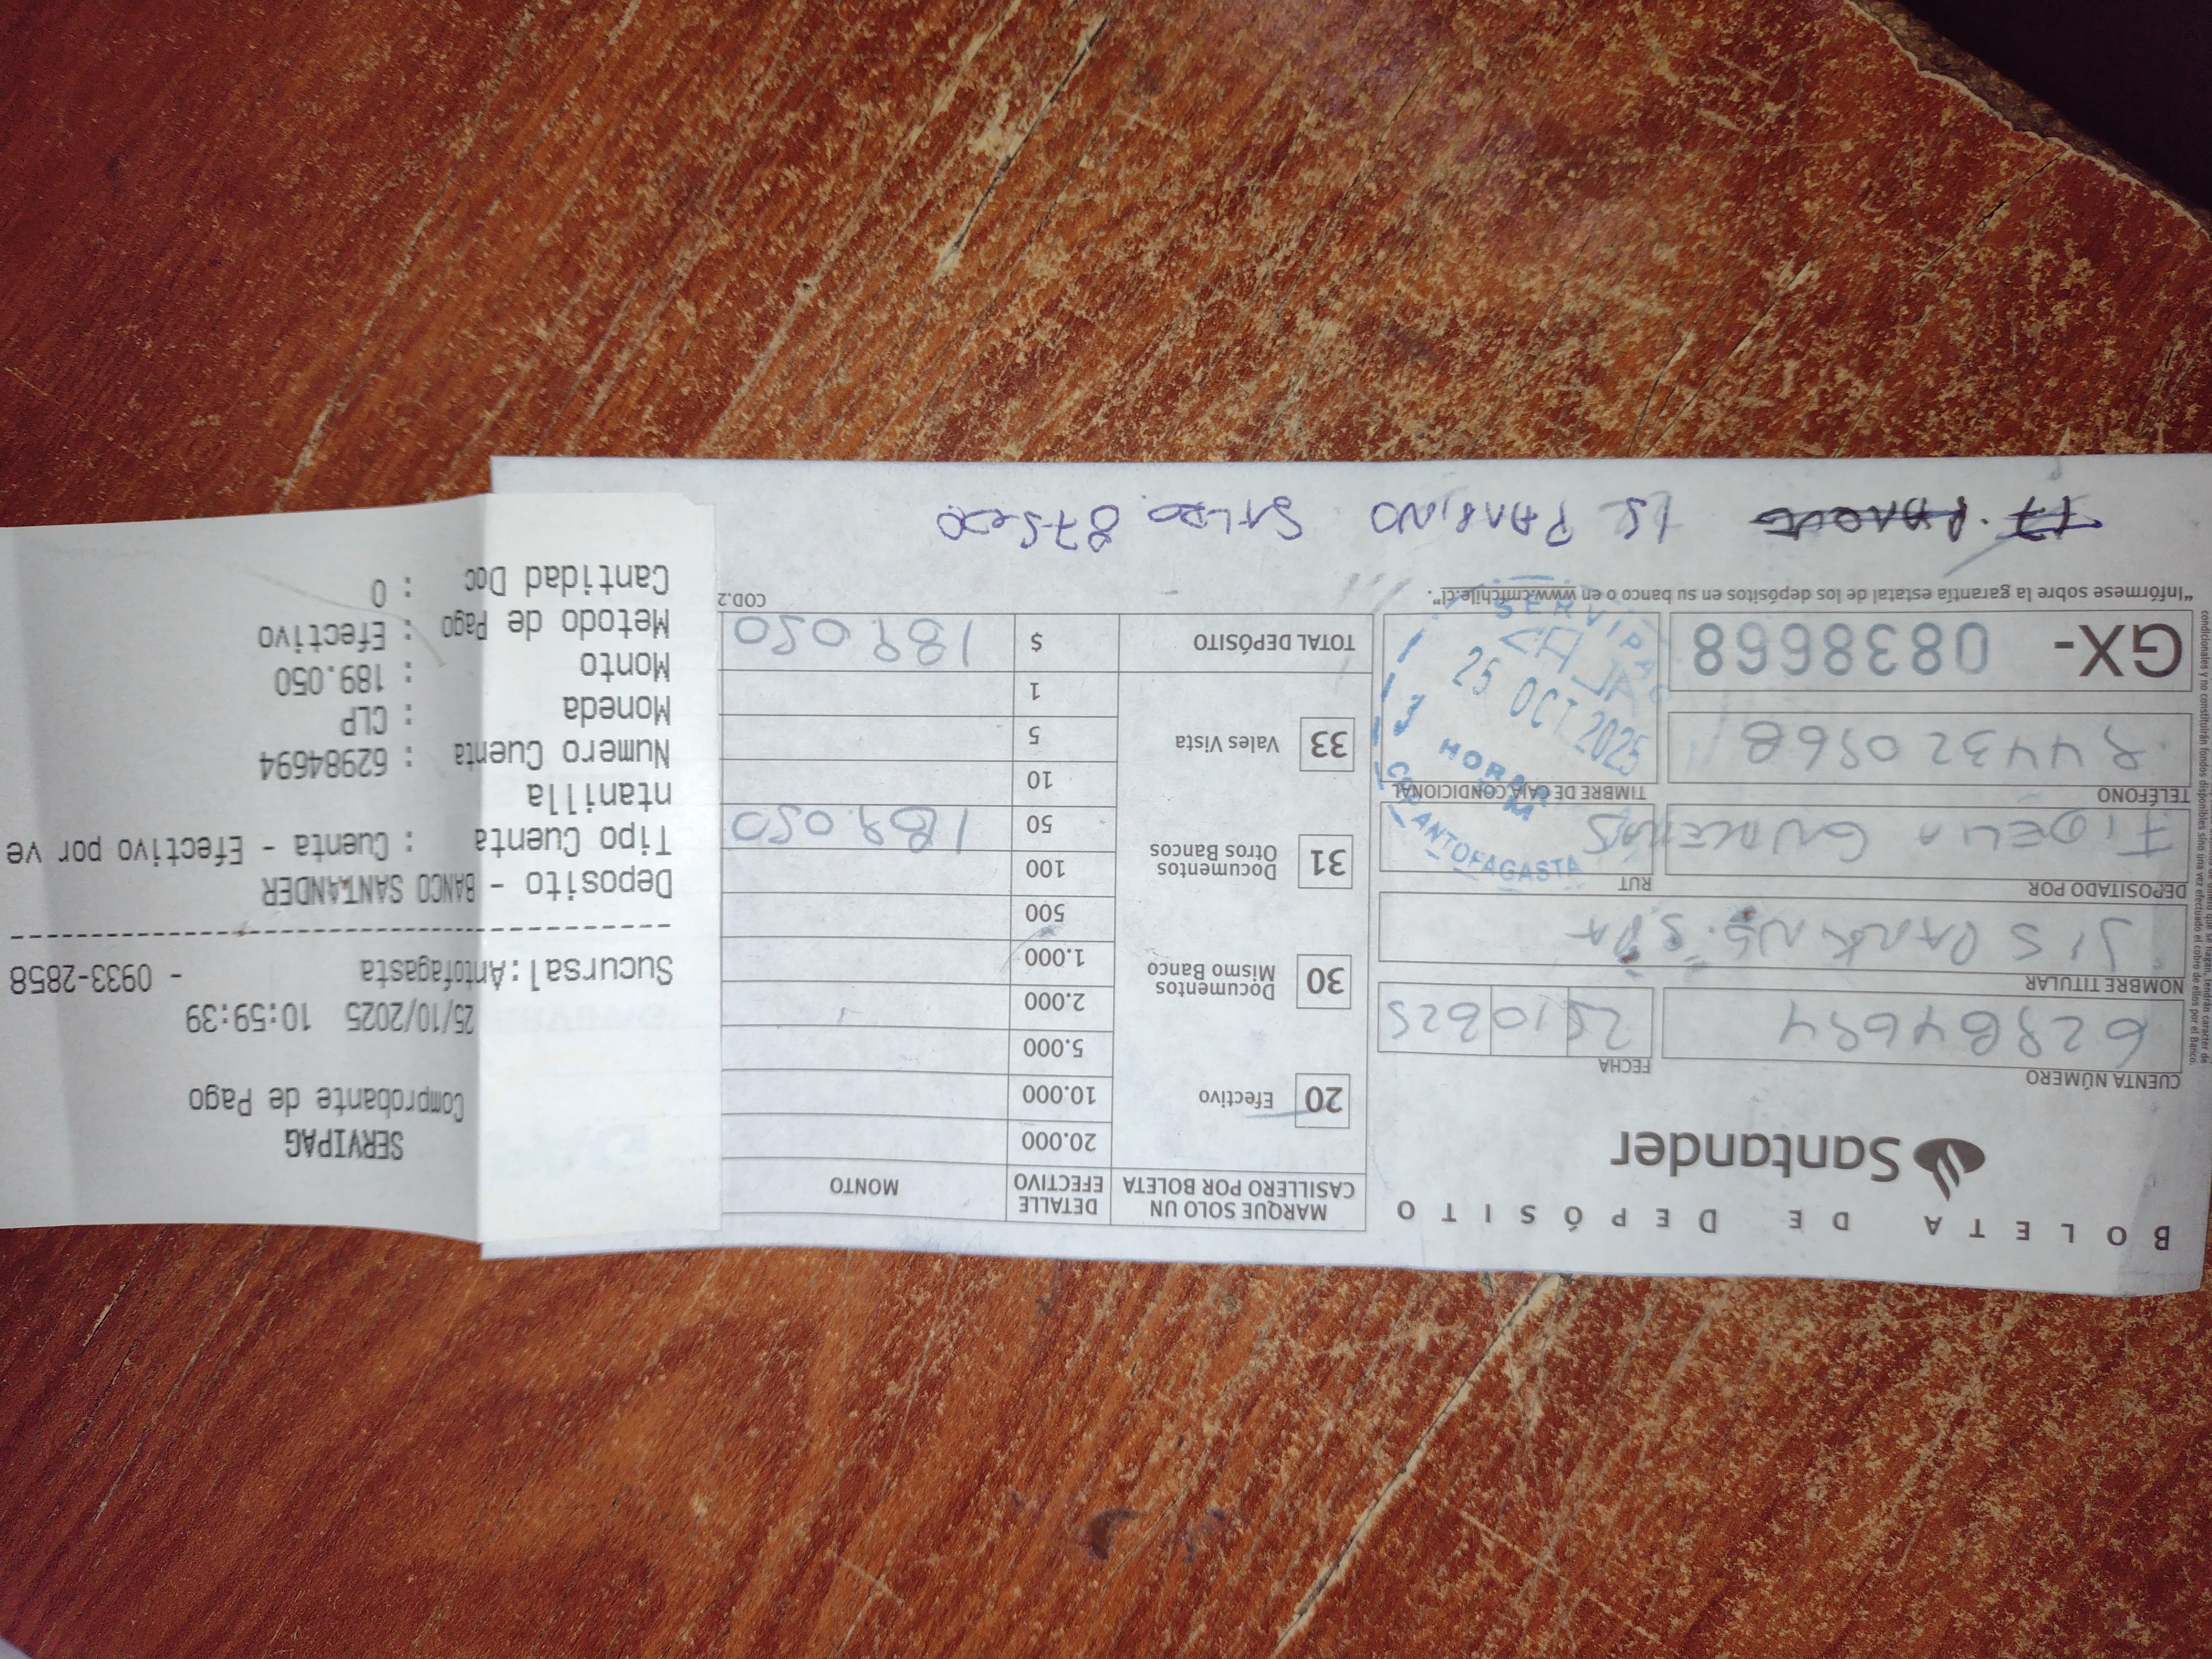 BOLETA DE DEPÓSITO
Santander
CUENTA NÚMERO
62984694
FECHA
25 10 2025
NOMBRE TITULAR
JIS PARKING SPA
DEPOSITADO POR
FIDELIA
RUT
TELÉFONO
944320568
TIMBRE DE CAJA CONDICIONAL
GX- 0838668
"Infórmese sobre la garantía estatal de los depósitos en su banco o en www.cmfchile.cl".
SERVIPAG
CAJA
25 OCT 2025
3
HORARIO
ANTOFAGASTA
MARQUE SOLO UN CASILLERO POR BOLETA
DETALLE EFECTIVO
MONTO
20 Efectivo
30 Documentos Mismo Banco
31 Documentos Otros Bancos
33 Vales Vista
20.000
10.000
5.000
2.000
1.000
500
100
50 189.050
10
5
1
TOTAL DEPÓSITO $ 189.050
COD.2
SERVIPAG
Comprobante de Pago
25/10/2025 10:59:39
Sucursal:Antofagasta - 0933-2858
Deposito - BANCO SANTANDER
Tipo Cuenta : Cuenta - Efectivo por ve
ntanilla
Numero Cuenta : 62984694
Moneda : CLP
Monto : 189.050
Metodo de Pago : Efectivo
Cantidad Doc : 0